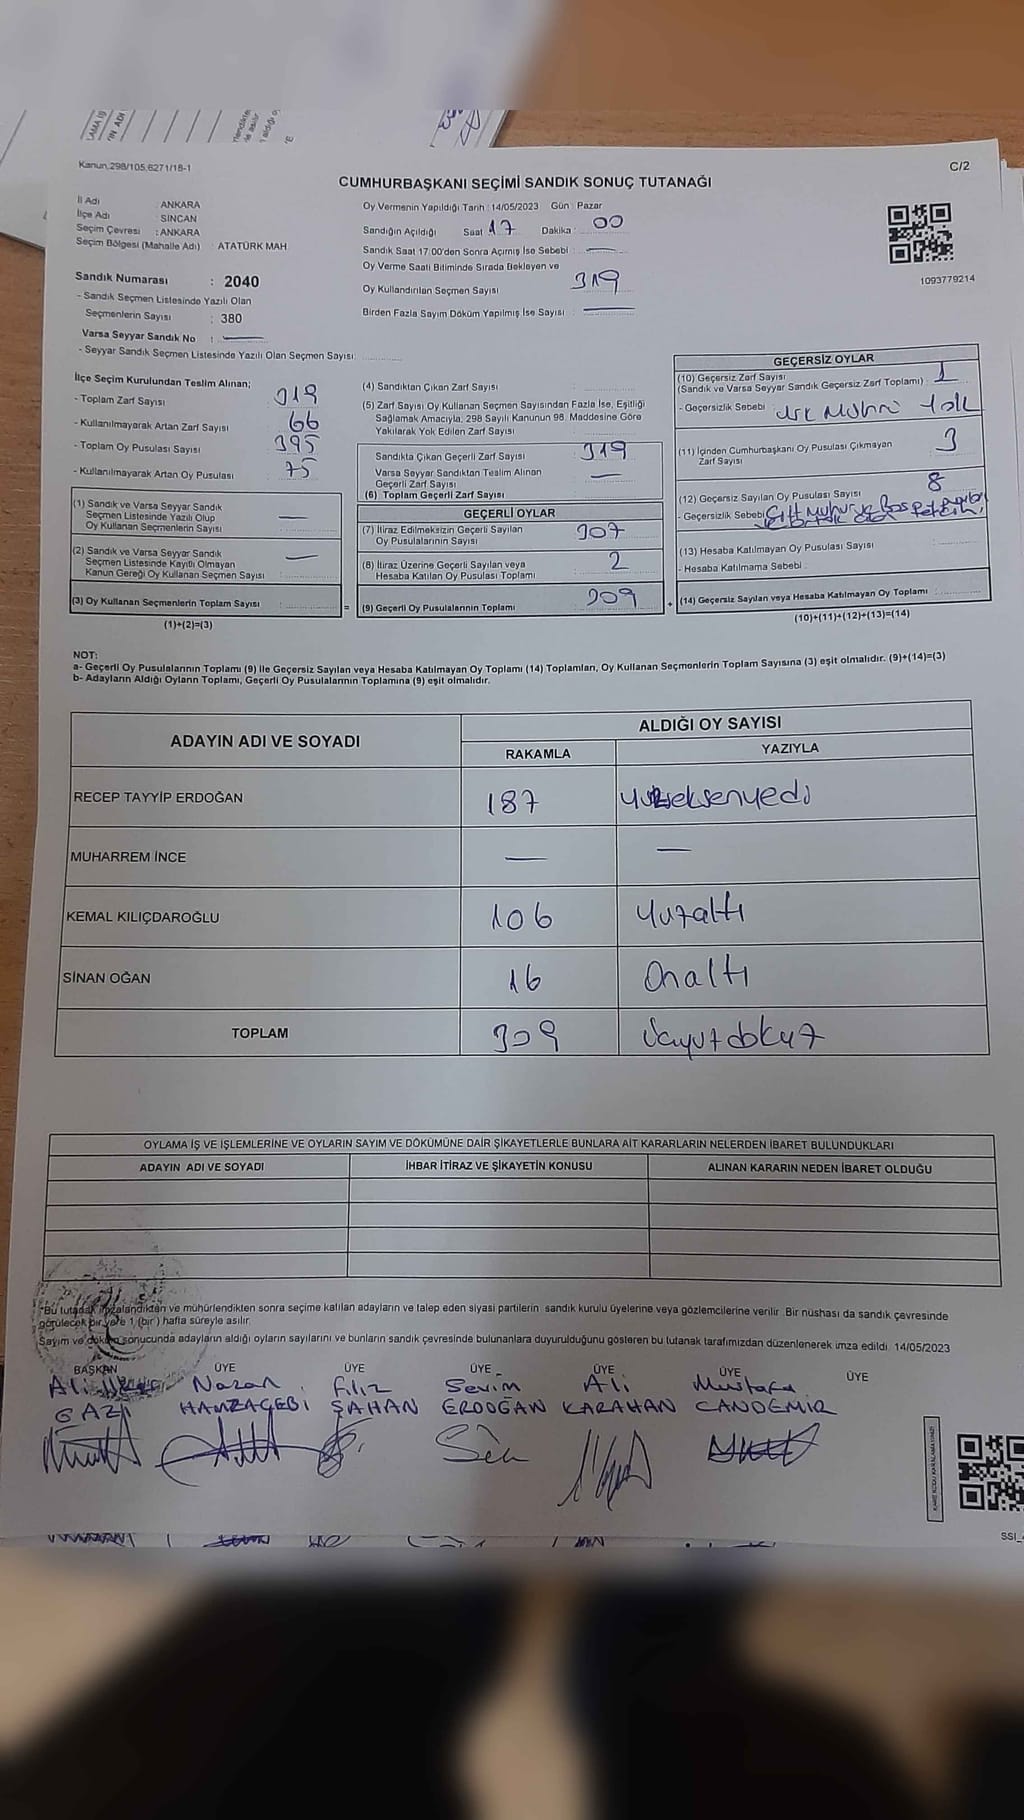 Kanun,298/105,6271/18-1
C/2
CUMHURBAŞKANI SEÇİMİ SANDIK SONUÇ TUTANAĞI
İl Adı : ANKARA
İlçe Adı : SİNCAN
Seçim Çevresi : ANKARA
Seçim Bölgesi (Mahalle Adı) : ATATÜRK MAH.
Sandık Numarası : 2040
- Sandık Seçmen Listesinde Yazılı Olan
Seçmenlerin Sayısı : 380
Varsa Seyyar Sandık No : —
- Seyyar Sandık Seçmen Listesinde Yazılı Olan Seçmen Sayısı:
Oy Vermenin Yapıldığı Tarih : 14/05/2023 Gün : Pazar
Sandığın Açıldığı Saat 17 Dakika : 00
Sandık Saat 17:00'den Sonra Açımış İse Sebebi : —
Oy Verme Saati Bitiminde Sırada Bekleyen ve
Oy Kullandırılan Seçmen Sayısı 319
Birden Fazla Sayım Döküm Yapılmış İse Sayısı : —
1093779214
İlçe Seçim Kurulundan Teslim Alınan;
- Toplam Zarf Sayısı 319
- Kullanılmayarak Artan Zarf Sayısı : 66
- Toplam Oy Pusulası Sayısı : 395
- Kullanılmayarak Artan Oy Pusulası : 75
(1) Sandık ve Varsa Seyyar Sandık
Seçmen Listesinde Yazılı Olup
Oy Kullanan Seçmenlerin Sayısı : —
(2) Sandık ve Varsa Seyyar Sandık
Seçmen Listesinde Kayıtlı Olmayan
Kanun Gereği Oy Kullanan Seçmen Sayısı : —
(3) Oy Kullanan Seçmenlerin Toplam Sayısı :
(1)+(2)=(3)
=
(4) Sandıktan Çıkan Zarf Sayısı :
(5) Zarf Sayısı Oy Kullanan Seçmen Sayısından Fazla İse, Eşitliği
Sağlamak Amacıyla, 298 Sayılı Kanunun 98. Maddesine Göre
Yakılarak Yok Edilen Zarf Sayısı :
Sandıkta Çıkan Geçerli Zarf Sayısı : 319
Varsa Seyyar Sandıktan Teslim Alınan
Geçerli Zarf Sayısı : —
(6) Toplam Geçerli Zarf Sayısı :
GEÇERLİ OYLAR
(7) İtiraz Edilmeksizin Geçerli Sayılan
Oy Pusulalarının Sayısı : 307
(8) İtiraz Üzerine Geçerli Sayılan veya
Hesaba Katılan Oy Pusulası Toplamı : 2
(9) Geçerli Oy Pusulalarının Toplamı : 309
+
GEÇERSİZ OYLAR
(10) Geçersiz Zarf Sayısı
(Sandık ve Varsa Seyyar Sandık Geçersiz Zarf Toplamı) : 1
- Geçersizlik Sebebi : Yok
(11) İçinden Cumhurbaşkanı Oy Pusulası Çıkmayan
Zarf Sayısı : 3
(12) Geçersiz Sayılan Oy Pusulası Sayısı : 8
- Geçersizlik Sebebi Çift Mühür ve Boş
(13) Hesaba Katılmayan Oy Pusulası Sayısı :
- Hesaba Katılmama Sebebi :
(14) Geçersiz Sayılan veya Hesaba Katılmayan Oy Toplamı :
(10)+(11)+(12)+(13)=(14)
NOT:
a- Geçerli Oy Pusulalarının Toplamı (9) ile Geçersiz Sayılan veya Hesaba Katılmayan Oy Toplamı (14) Toplamları, Oy Kullanan Seçmenlerin Toplam Sayısına (3) eşit olmalıdır. (9)+(14)=(3)
b- Adayların Aldığı Oyların Toplamı, Geçerli Oy Pusulalarının Toplamına (9) eşit olmalıdır.
ADAYIN ADI VE SOYADI
ALDIĞI OY SAYISI
RAKAMLA YAZIYLA
RECEP TAYYİP ERDOĞAN 187 yüzseksenyedi
MUHARREM İNCE — —
KEMAL KILIÇDAROĞLU 106 Yüzaltı
SİNAN OĞAN 16 Onaltı
TOPLAM 309 Üçyüzdokuz
OYLAMA İŞ VE İŞLEMLERİNE VE OYLARIN SAYIM VE DÖKÜMÜNE DAİR ŞİKAYETLERLE BUNLARA AİT KARARLARIN NELERDEN İBARET BULUNDUKLARI
ADAYIN ADI VE SOYADI İHBAR İTİRAZ VE ŞİKAYETİN KONUSU ALINAN KARARIN NEDEN İBARET OLDUĞU
*Bu tutanak imzalandıktan ve mühürlendikten sonra seçime katılan adayların ve talep eden siyasi partilerin sandık kurulu üyelerine veya gözlemcilerine verilir. Bir nüshası da sandık çevresinde
görülecek bir yere 1 (bir ) hafta süreyle asılır.
Sayım ve döküm sonucunda adayların aldığı oyların sayılarını ve bunların sandık çevresinde bulunanlara duyurulduğunu gösteren bu tutanak tarafımızdan düzenlenerek imza edildi. 14/05/2023
BAŞKAN ÜYE ÜYE ÜYE ÜYE ÜYE ÜYE
Ali Nazan Filiz Sevim Ali Mustafa
GAZİ HAMZAÇEBİ ŞAHAN ERDOĞAN KARAHAN CANDEMİR
KARE KODU KARALAMAYINIZ!
SSI_